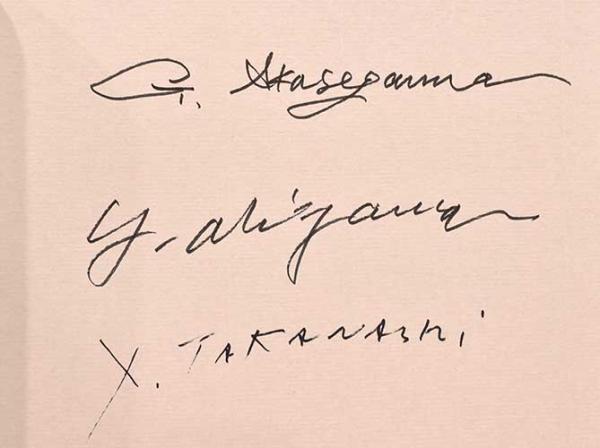 G. Akasegawa
y. akiyama
Y. TAKANASHi